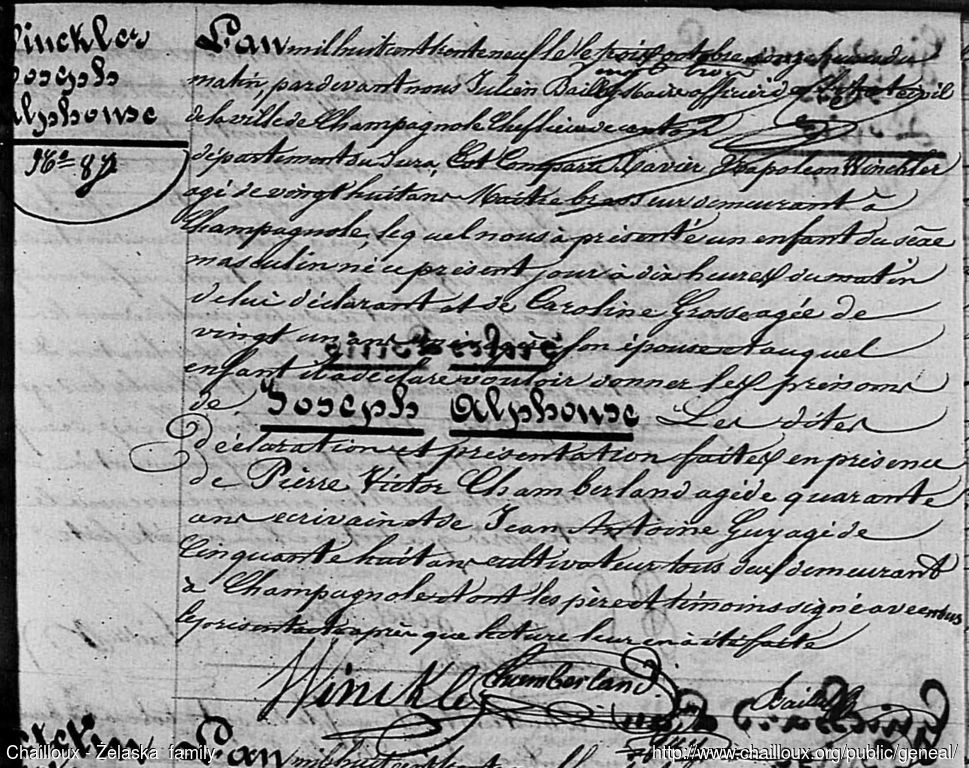 Winckler
Joseph
Alphonse
N° 87
L'an mil huit cent trente neuf le trois octobre onze heures du
matin, par devant nous Julien Bailly Maire officier de l'état civil
de la ville de Champagnole Chef lieu de canton
département du Jura, Est Comparu Xavier Napoleon Winckler
agé de vingt huit ans Maitre brasseur demeurant à
Champagnole, lequel nous à présenté un enfant du sexe
masculin né ce présent jour à dix heures du matin
de lui déclarant et de Caroline Grosse agée de
vingt un ans son épouse et auquel
enfant il a déclaré vouloir donner les prénoms
de Joseph Alphonse Les dites
déclaration et présentation faites en présence
de Pierre Victor Chamberland agé de quarante
ans ecrivain et de Jean Antoine Guy agé de
Cinquante huit ans cultivateur tous deux demeurant
à Champagnole et ont les père et témoins signé avec nous
le présent acte après que lecture leur en à été faite
Winckler Chamberland Bailly
Guy
L'an mil huit cent trente neuf le
Chailloux - Zelaska family
http://www.chailloux.org/public/geneal/